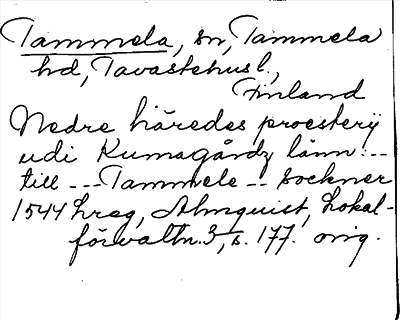 Tammela, sn, Tammela
hd, Tavastehusl.,
Finland
Nedre häredes proesterij
udi Kumagårdz länn: --
till --- Tammele -- sockner
1544 Lreg, Almquist, Lokal-
förvaltn. 3, s. 177. orig.